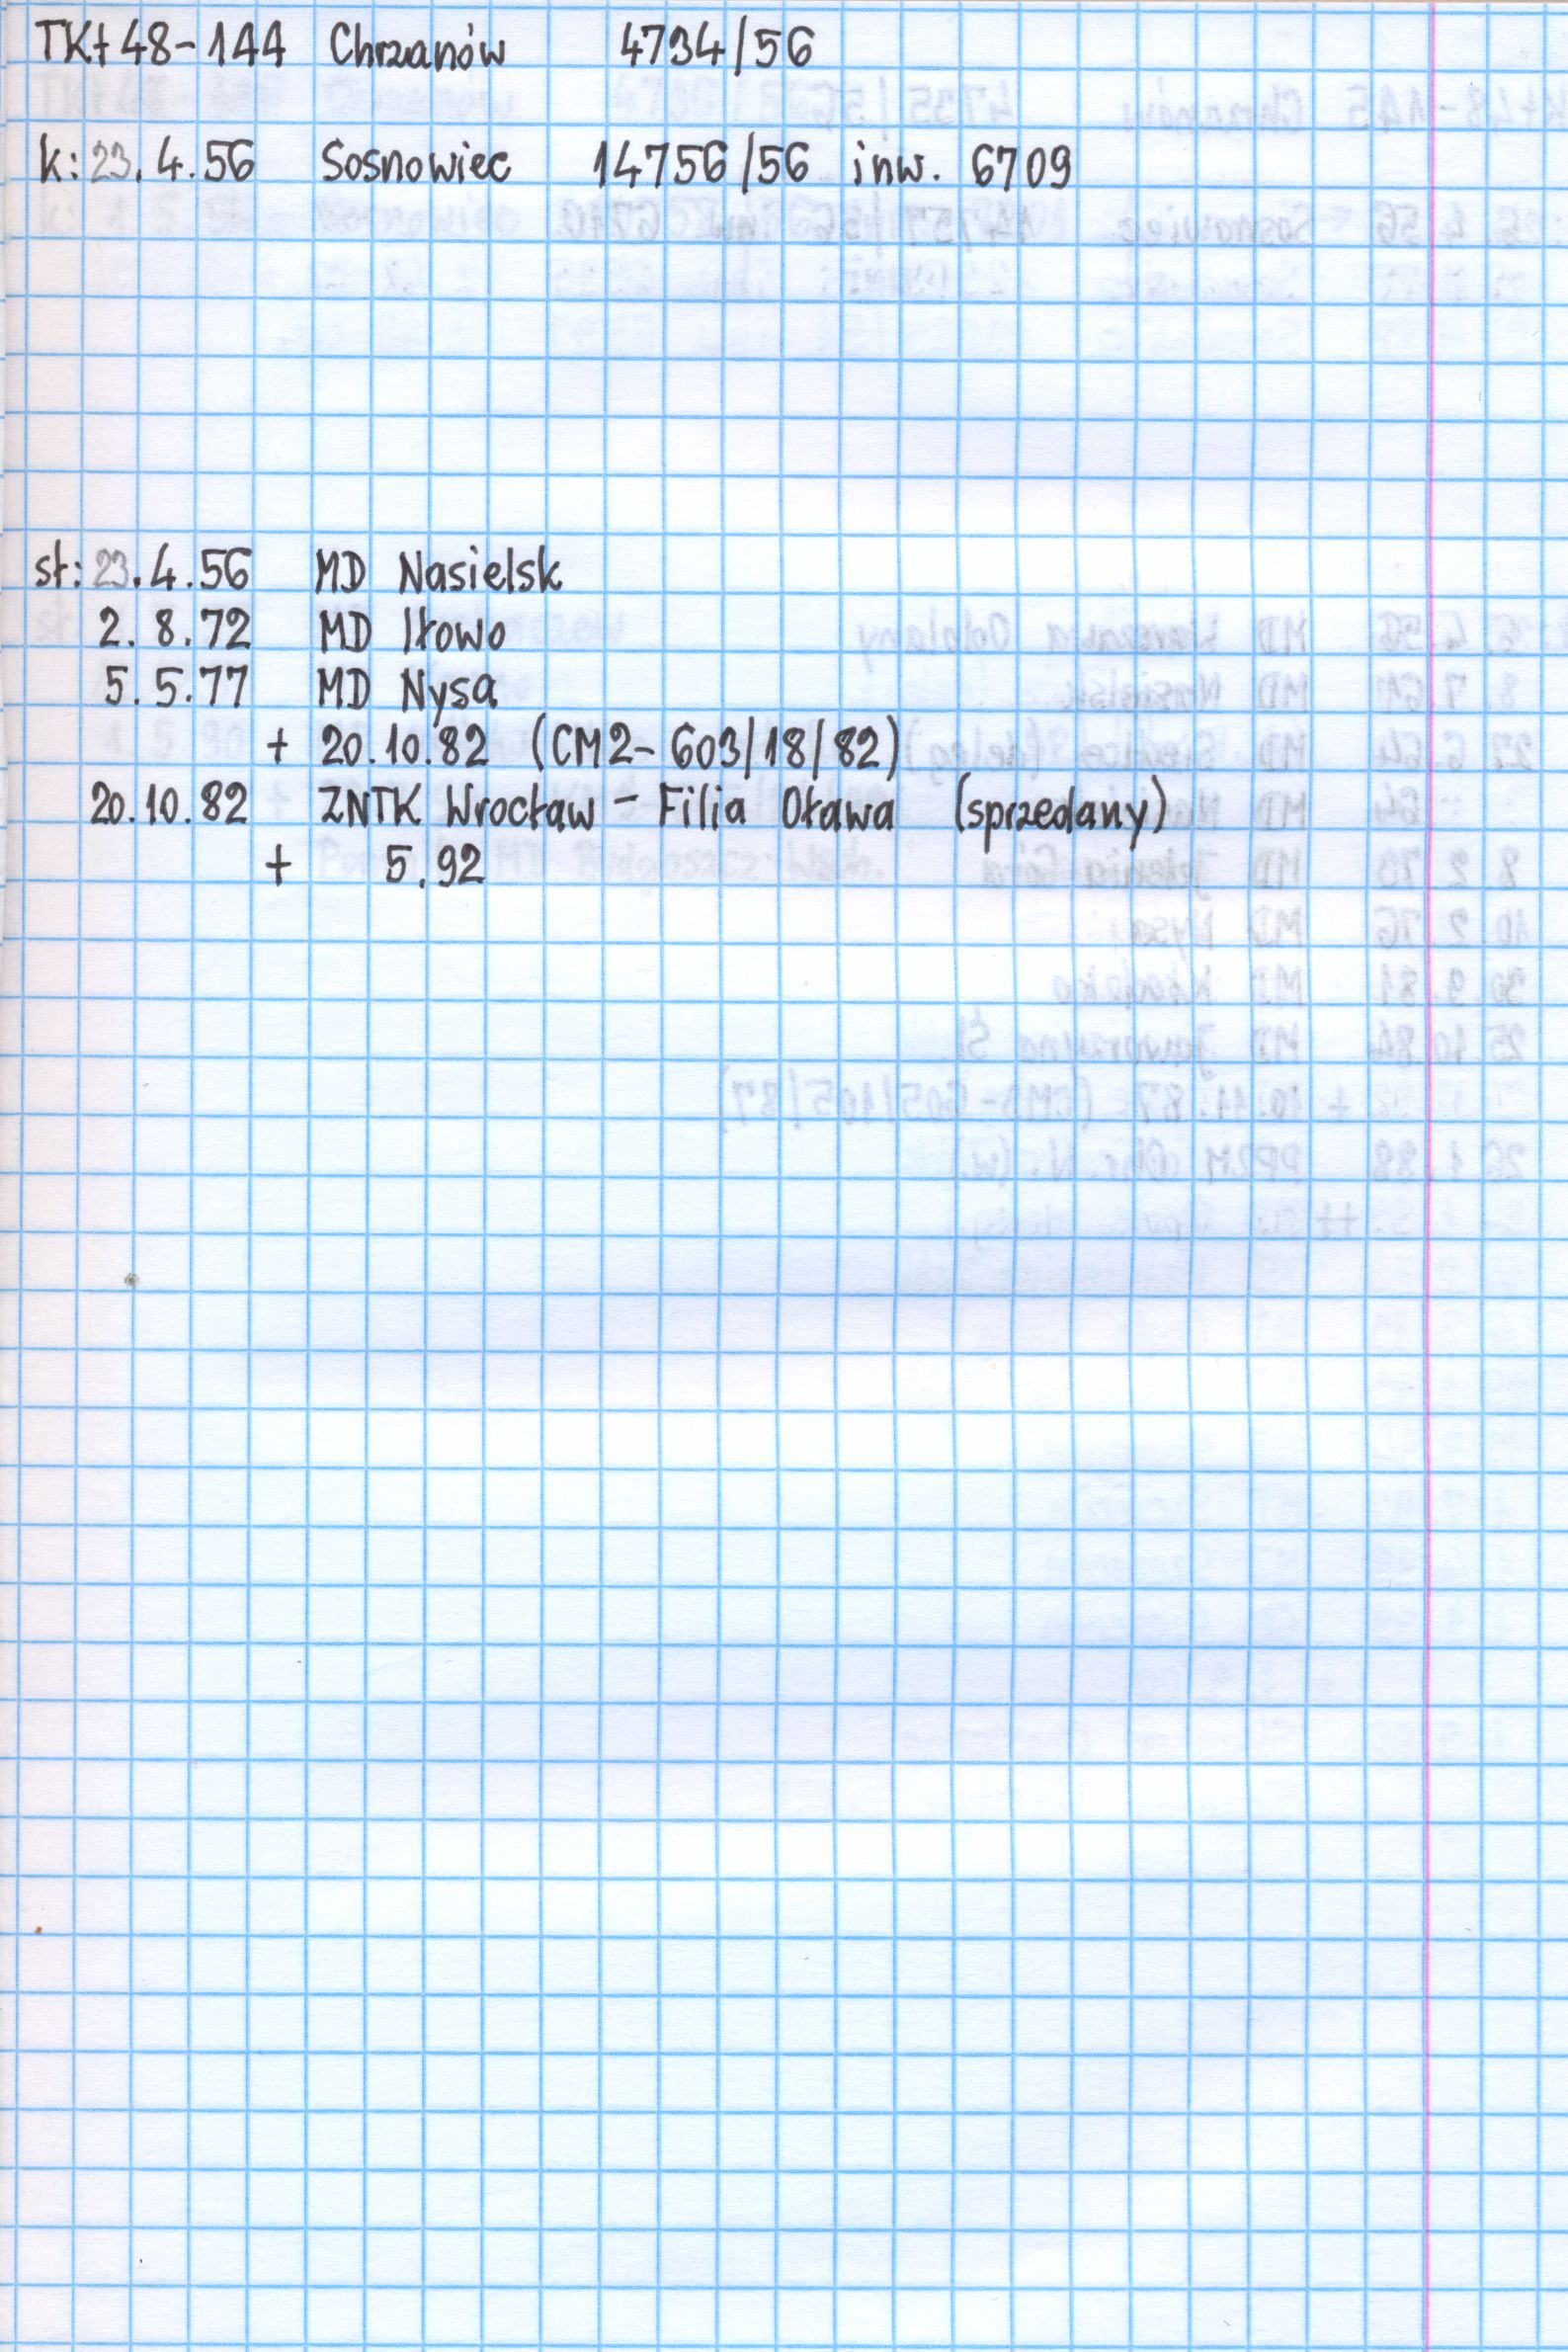 TKt48-144 Chrzanów 4734/56
k: 23.4.56 Sosnowiec 14756/56 inw. 6709
st: 23.4.56 MD Nasielsk
2.8.72 MD Iłowo
5.5.77 MD Nysa
+ 20.10.82 (CM2-603/18/82)
20.10.82 ZNTK Wrocław - Filia Oława (sprzedany)
+ 5.92